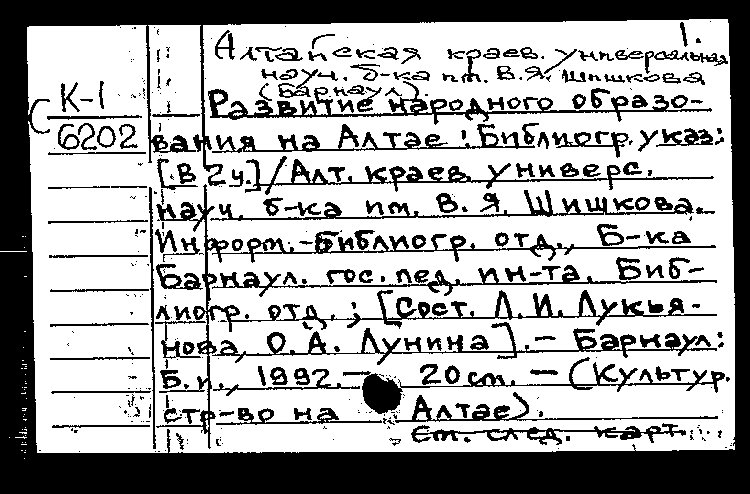 1.
Алтайская краев. универсальная
науч. б-ка им. В.Я. Шишкова
(Барнаул).
С К-1
6202
Развитие народного образо-
вания на Алтае : Библиогр. указ:
[В 2 ч.] / Алт. краев. универс.
науч. б-ка им. В. Я. Шишкова.
Информ.-библиогр. отд., Б-ка
Барнаул. гос. пед. ин-та. Биб-
лиогр. отд. ; [Сост. Л. И. Лукья-
нова, О. А. Лунина]. - Барнаул:
Б. и., 1992. - 20 см. - (Культур.
стр-во на Алтае).
См. след. карт.